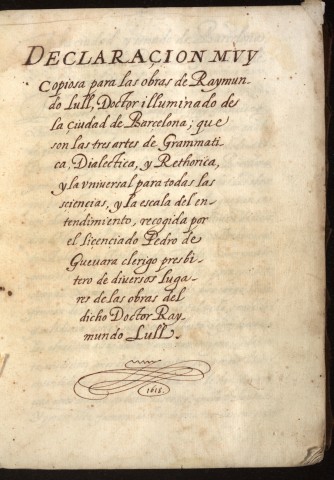 DECLARACION MVY
Copiosa para las obras de Raymun-
do Lull, Doctor illuminado des
la ciudad de Barcelona; que
son las tres artes de Grammati
ca, Dialectica, y Rethorica,
y la vniversal para todas las
sciencias, y la escala del en-
tendimiento, recogida por
el licenciado Pedro de
Guevara clerigo presbi-
tero de diversos luga-
res de las obras del
dicho Doctor Ray-
mundo Lull.
1616.